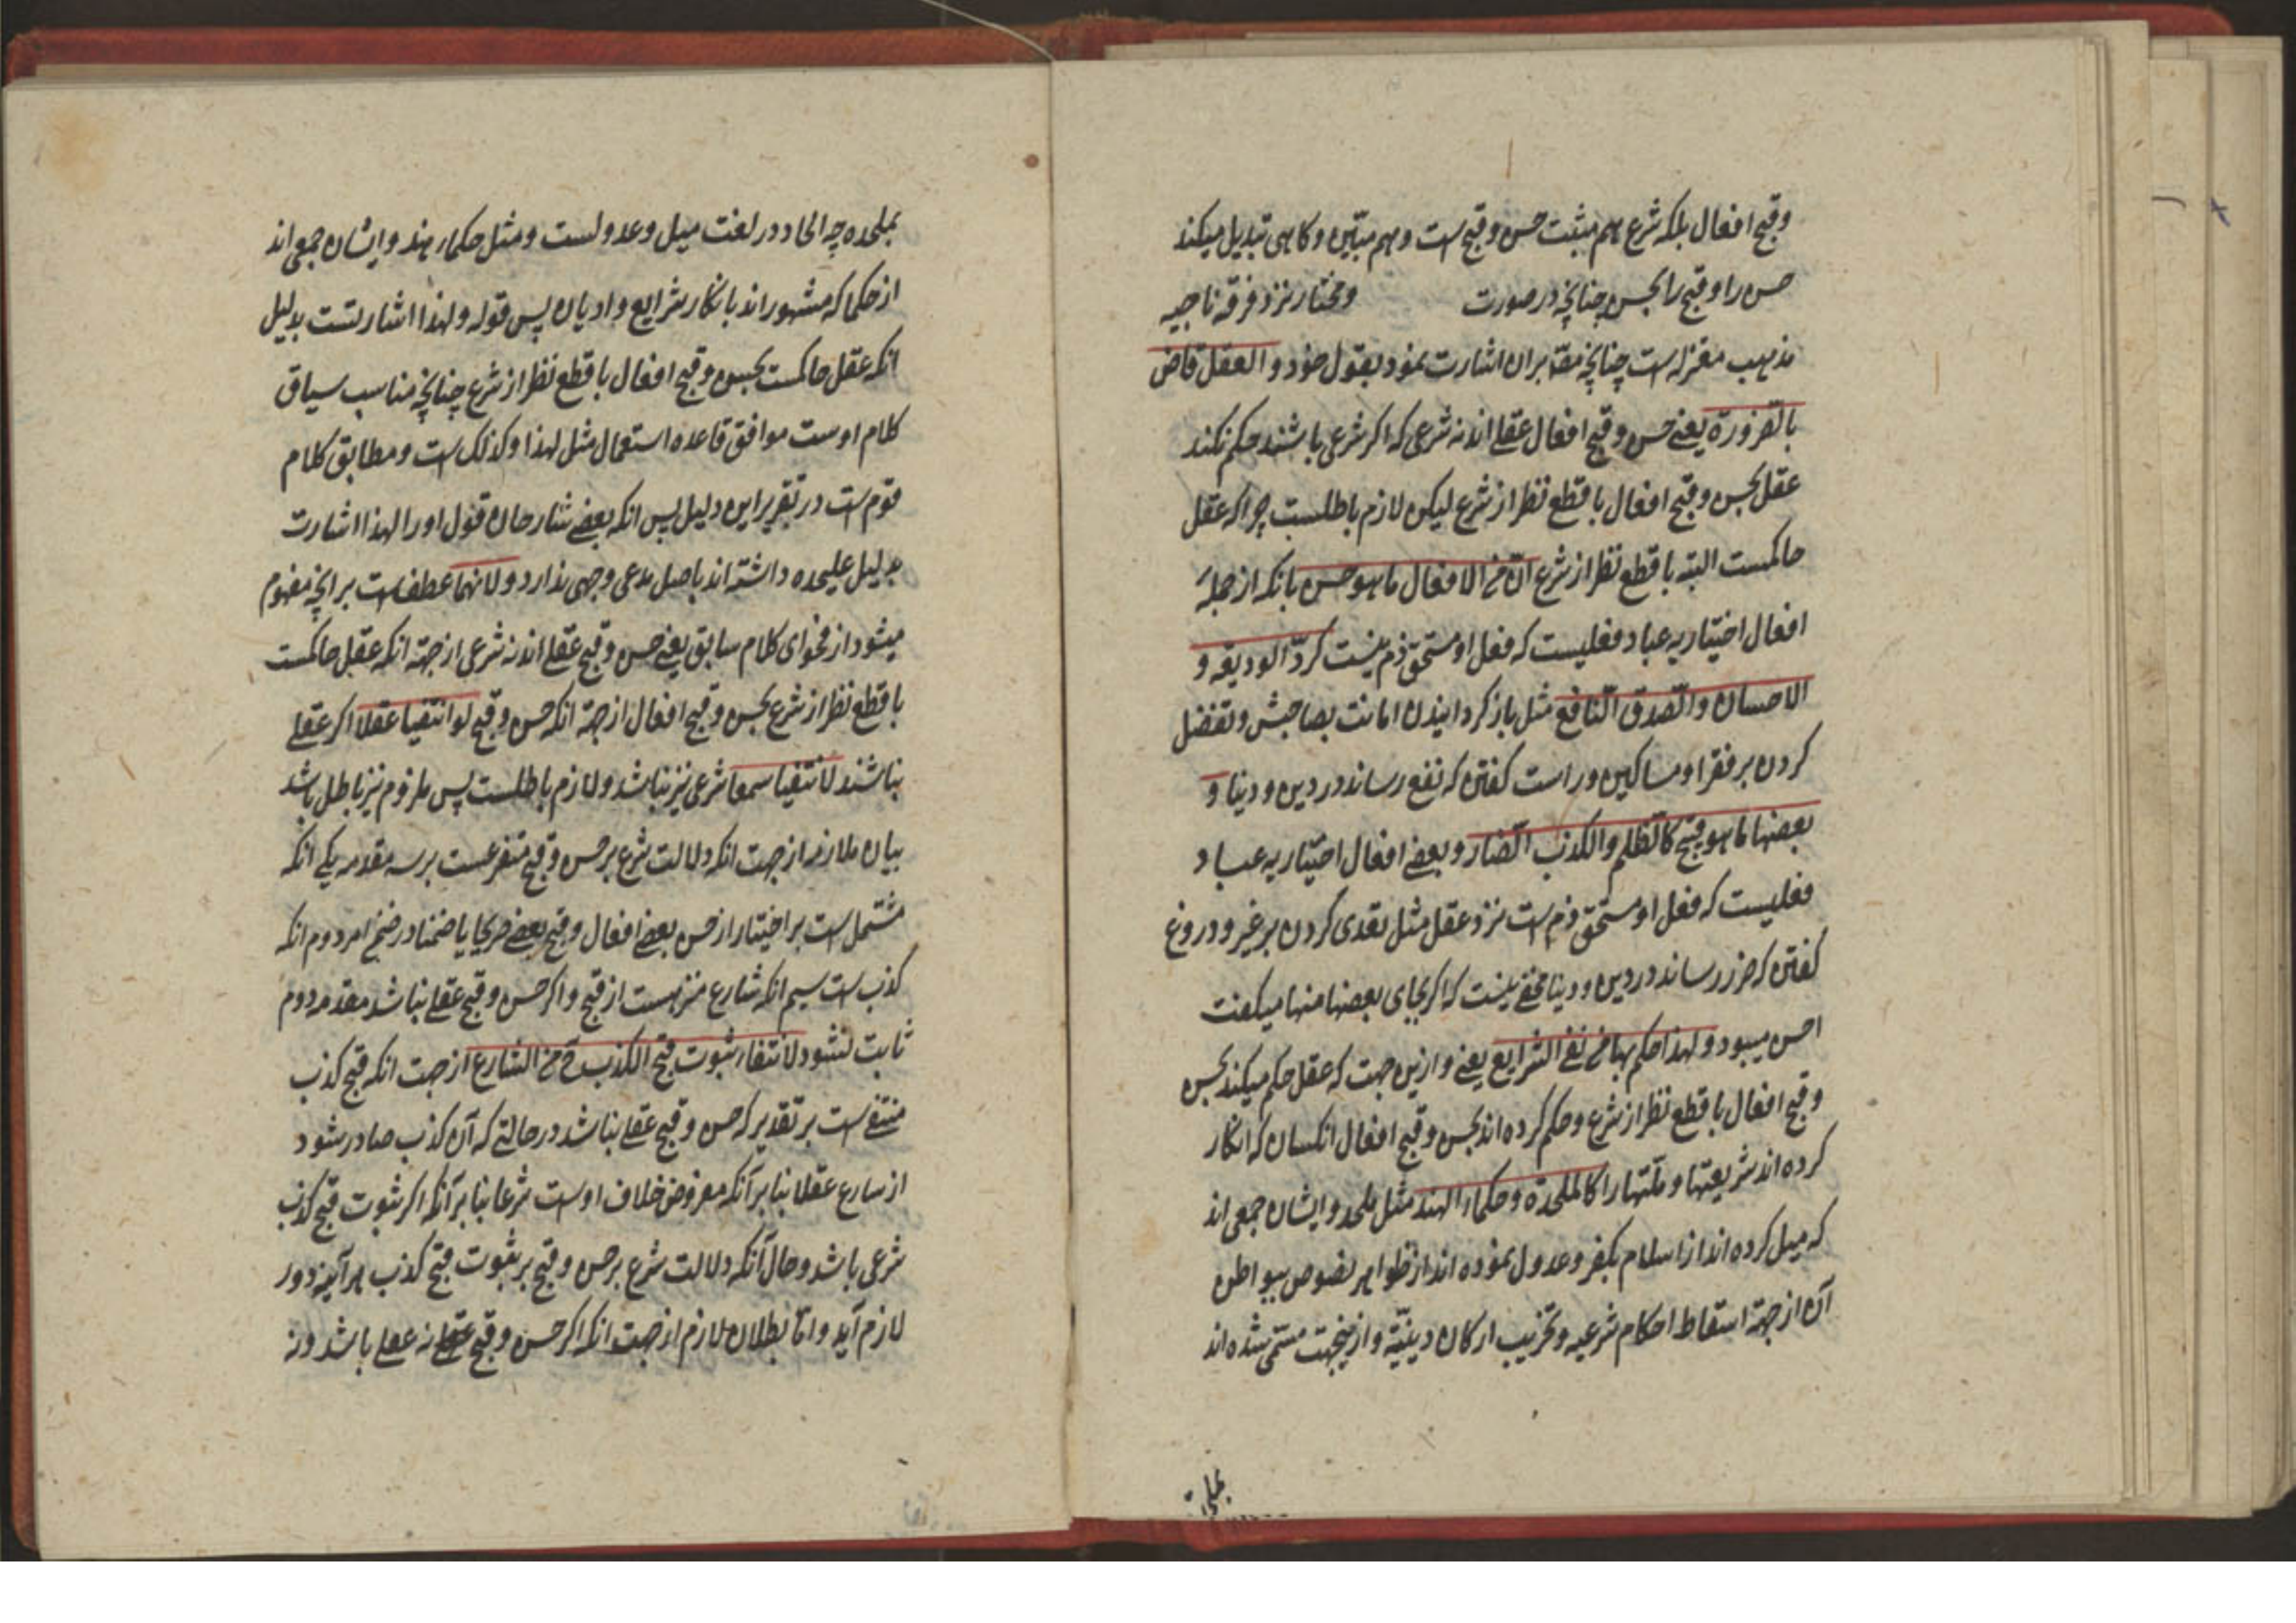 وقبح افعال بلکه شرع هم مثبت حسن و قبح است و هم مبیّن و کاهی تبدیل میکند
حسن را و قبح را بحسن چنانچه در صورت و مختار نزد فرقه ناجیه
مذهب معتزله است چنانچه مصّ بران اشارت نمود بقول خود و العقل قاض
بالضرورة یعنی حسن و قبح افعال عقلی اند نه شرعی که اکر شرعی باشند حکم نکند
عقل بحسن و قبح افعال با قطع نظر از شرع لیکن لازم باطلست چرا که عقل
حاکمست البته با قطع نظر از شرع انّ من الافعال ما هو حسن بانکه از جمله
افعال اختیاریه عباد فعلیست که فعل او مستحق ذم نیست کردّ الودیعه و
الاحسان والصّدق النّافع مثل باز کردانیدن امانت بصاحبش و تفضل
کردن بر فقرا و مساکین و راست کفتن که نفع رساند در دین و دنیا و
بعضها ما هو قبیح کالظلم والکذب الضّار و بعضی افعال اختیاریه عباد
فعلیست که فعل او مستحق ذم است نزد عقل مثل تعدی کردن بر غیر و دروغ
کفتن که ضرر رساند در دین و دنیا مخفی نیست که اکر بجای بعضها منها میکفت
احسن میبود و لهذا حکم بهما من نفی الشرایع یعنی و ازین جهت که عقل حکم میکند بحسن
و قبح افعال با قطع نظر از شرع و حکم کرده اند بحسن و قبح افعال انکسان که انکار
کرده اند شریعتها و ملّتها را کالملحدة و حکماء الهند مثل ملحد و ایشان جمعی اند
که میل کرده اند از اسلام بکفر و عدول نموده اند از ظواهر نصوص ببواطن
آن از جهة اسقاط احکام شرعیه و تخریب ارکان دینیّة و ازینجهت مسمّی شده اند
بملحده
بملحده چه الحاد در لغت میل و عدولست و مثل حکماء هند و ایشان جمعی اند
از حکما که مشهور اند بانکار شرایع و ادیان پس قوله و لهذا اشارتست بدلیل
انکه عقل حاکمست بحسن و قبح افعال با قطع نظر از شرع چنانچه مناسب سیاق
کلام اوست موافق قاعده استعمال مثل لهذا و کذلک است و مطابق کلام
قوم است در تقریر این دلیل پس انکه بعضی شارحان قول او را لهذا اشارت
بدلیل علیحده داشته اند باصل مدعی وجهی ندارد و لانهما عطف است بر انچه مفهوم
میشود از فحوای کلام سابق یعنی حسن و قبح عقلی اند نه شرعی از جهة انکه عقل حاکمست
با قطع نظر از شرع بحسن و قبح افعال از جهة انکه حسن و قبح لو انتفیا عقلا اکر عقلی
نباشند لانتفیا سمعا شرعی نیز نباشد و لازم باطلست پس ملزوم نیز باطل باشد
بیان ملازمه از جهت انکه دلالت شرع بر حسن و قبح متفرعست بر سه مقدمه یکی انکه
مشتمل است بر اختیار از حسن بعضی افعال و قبح بعضی صریحا یا ضمنا در ضمن امر دوم انکه
کذب است سیم انکه شارع منزهست از قبح و اکر حسن و قبح عقلی نباشد مقدمه دوم
ثابت نشود لانتفاء ثبوت قبح الکذب ح من الشارع از جهت انکه قبح کذب
منتفی است بر تقدیر که حسن و قبح عقلی نباشد در حالتی که آن کذب صادر شود
از شارع عقلا بنا بر آنکه مفروض خلاف اوست شرعا بنا بر آنکه اکر ثبوت قبح کذب
شرعی باشد و حال آنکه دلالت شرع بر حسن و قبح بر ثبوت قبح کذب هر آینه دور
لازم آید و امّا بطلان لازم از جهت انکه اکر حسن و قبح عقلی نه عقلی باشد و نه